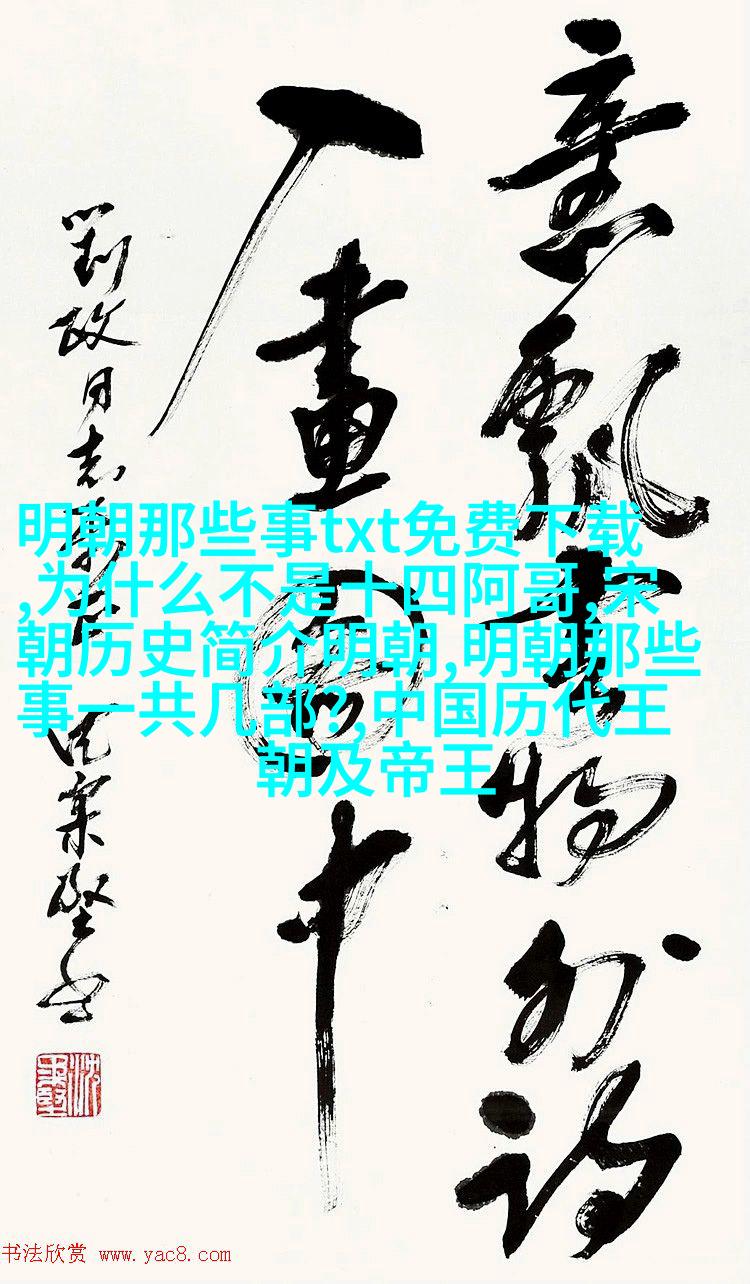 意飄雲物外詩
入畫圖中
劉政同志
明朝那些事txt免费下载
,为什么不是十四阿哥,宋
朝历史简介明朝,明朝那些
事一共几部?,中国历代王
朝及帝王
书法欣赏 www.yac8.com